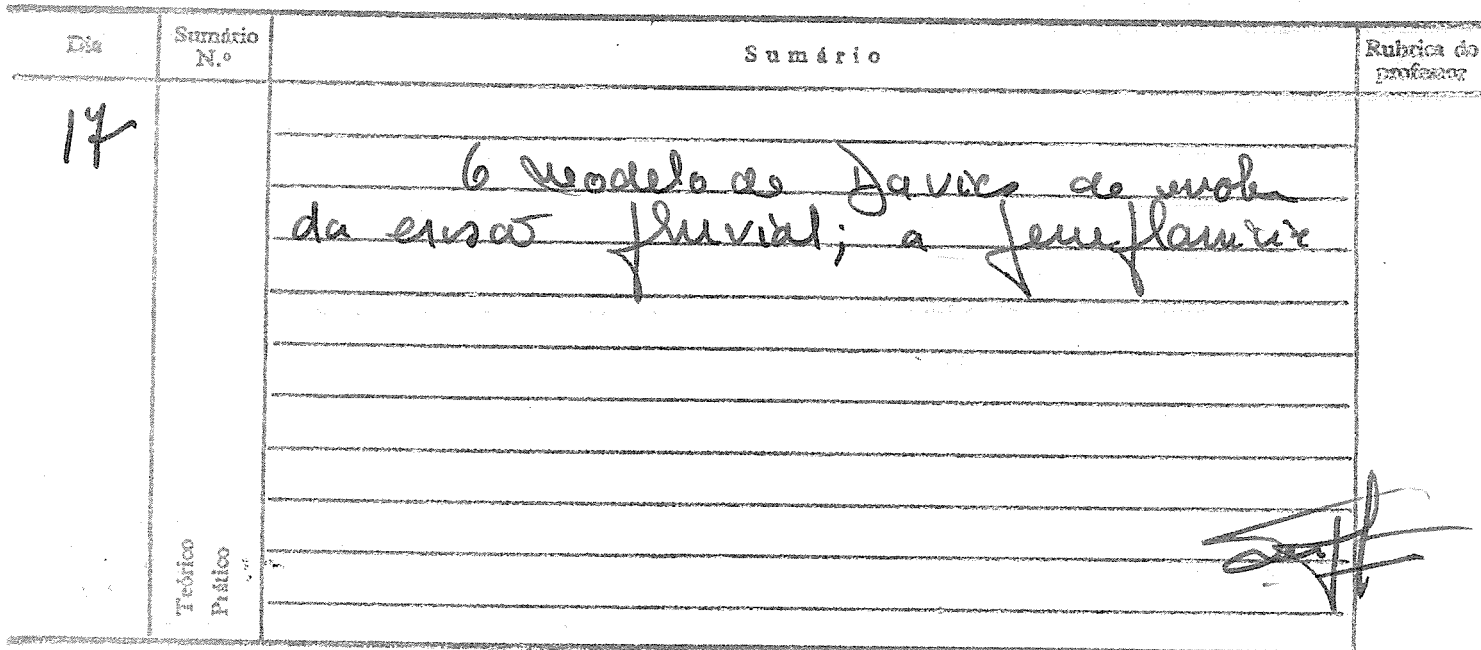 Dia
Sumário N.º
Sumário
Rubrica do professor
17
O modelo de Davis de
da erosão fluvial; a
Teórico
Prático